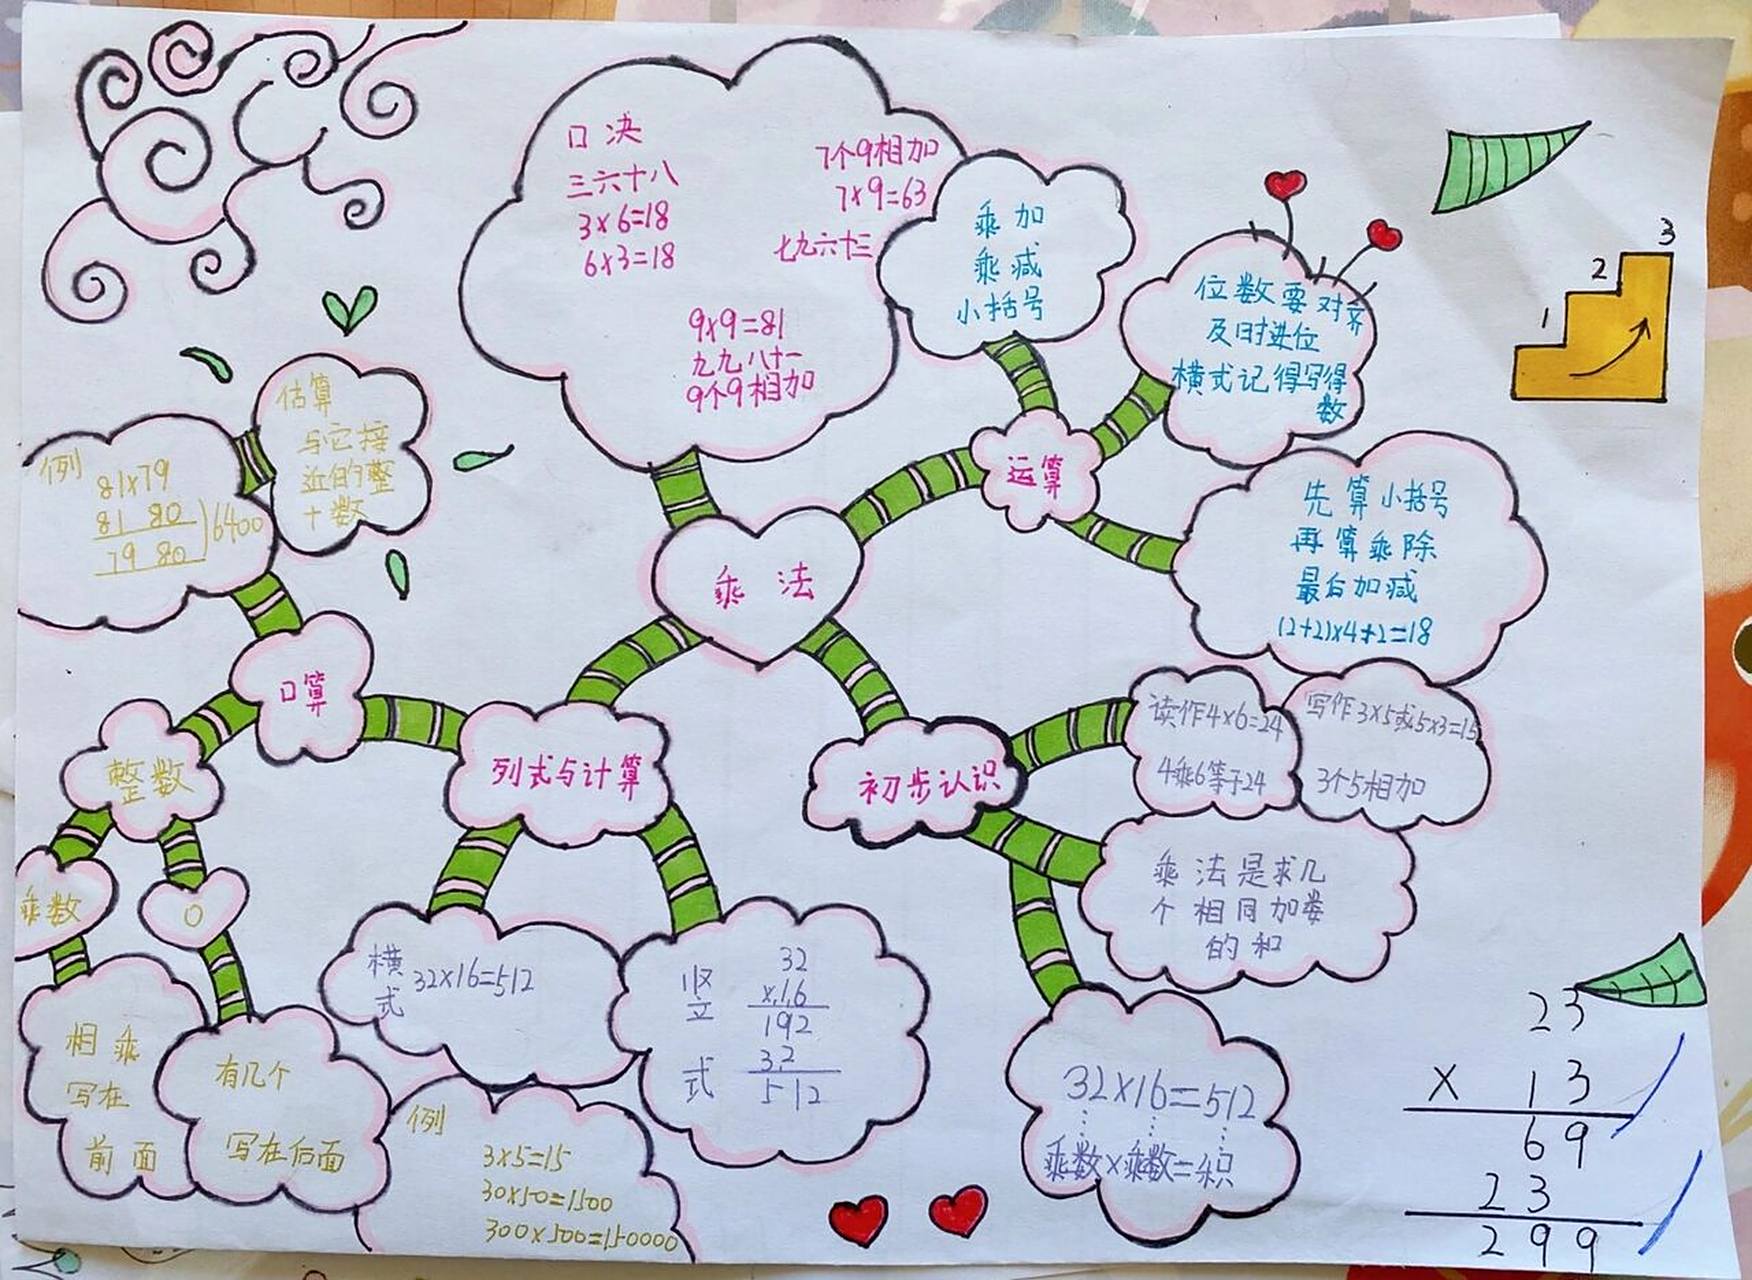 口决
三六十八
3×6=18
6×3=18
7个9相加
7×9=63
七九六十三
9×9=81
九九八十一
9个9相加
乘加
乘减
小括号
位数要对齐
及时进位
横式记得写得
数
1
2
3
运算
先算小括号
再算乘除
最后加减
(2+2)×4+2=18
乘法
估算
与它接
近的整
十数
例
81×79
81 80
79 80
6400
口算
整数
乘数
0
相乘
写在
前面
有几个
写在后面
例
3×5=15
30×50=1500
300×500=150000
列式与计算
横式
32×16=512
竖立式
32
×16
192
32
512
初步认识
读作4×6=24
4乘6等于24
写作3×5或5×3=15
3个5相加
乘法是求几
个相同加娄
的和
32×16=512
乘数×乘数=积
23
× 13
69
23
299